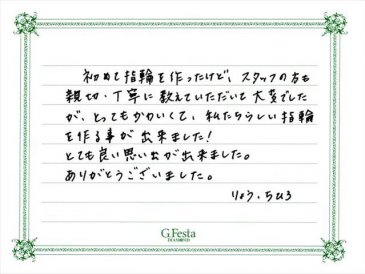 初めて指輪を作ったけど、スタッフの方も
親切・丁寧に教えていただいて大変でした
が、とってもかわいくて、私たちらしい指輪
を作る事が出来ました!
とても良い思い出が出来ました。
ありがとうございました。
りょう・ちひろ
G.Festa
DIAMOND